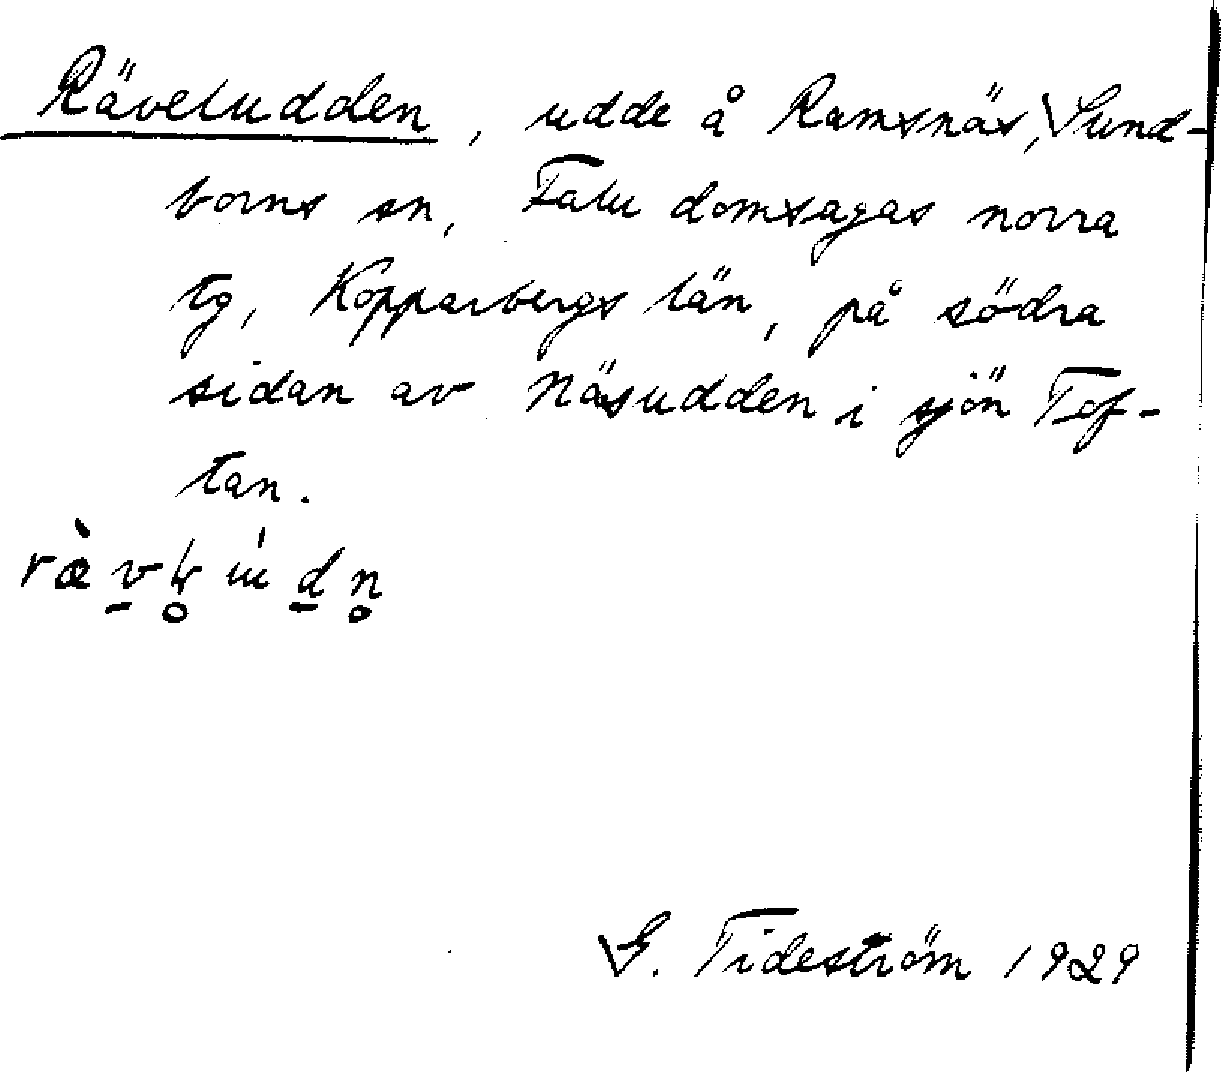 Räveludden, udde å Ramsnäs, Sund-
borns sn, Falu domsagas norra
tg, Kopparbergs län, på södra
sidan av Näsudden i sjön Tof-
tan.
G. Tideström 1929